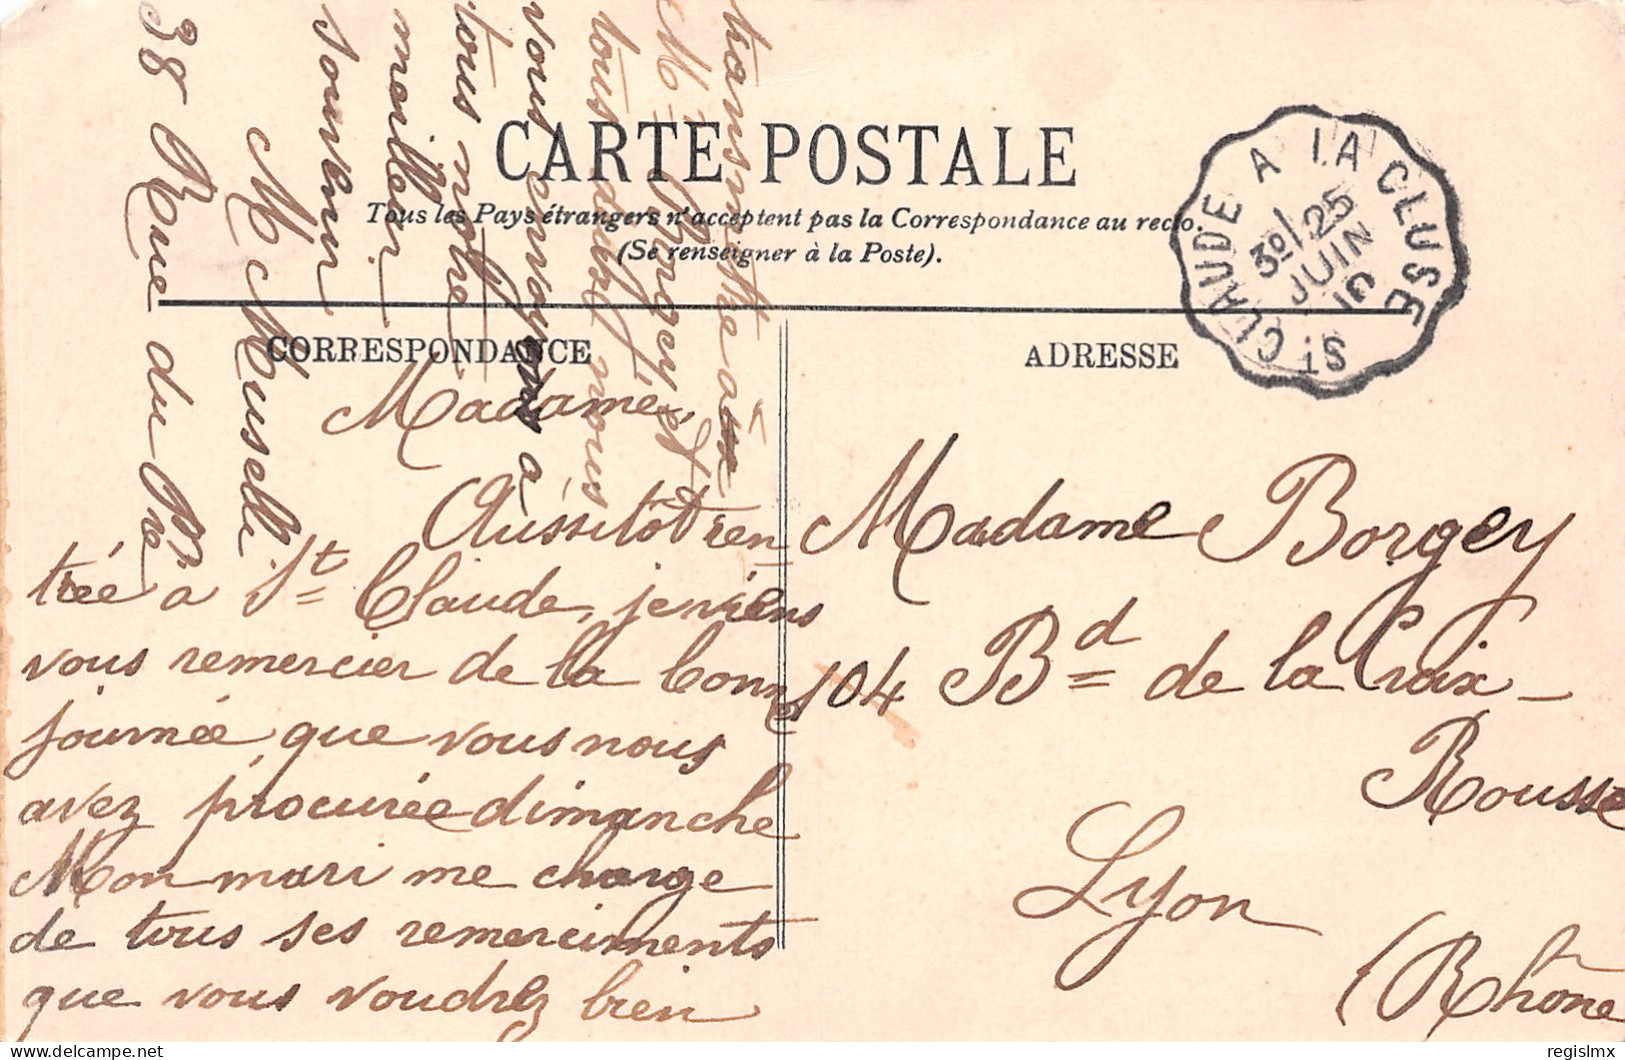 CARTE POSTALE
Tous les Pays étrangers n'acceptent pas la Correspondance au recto.
(Se renseigner à la Poste).
CORRESPONDANCE
ADRESSE
ST CLAUDE A LA CLUSE
25
JUIN
10
Madame
Aussitôt ren
trée a St Claude, je viens
vous remercier de la bonne
journée que vous nous
avez procurée dimanche
Mon mari me charge
de tous ses remerciments
que vous voudrez bien
transmettre aux
Mr Borgey et
tous deux nous
vous envoyons a
tous notre
meilleur
souvenir
M Muselli
38 Rue du Pré
Madame Borgey
104 Bd de la Croix-
Rousse
Lyon
(Rhône
regislmx
© delcampe.net